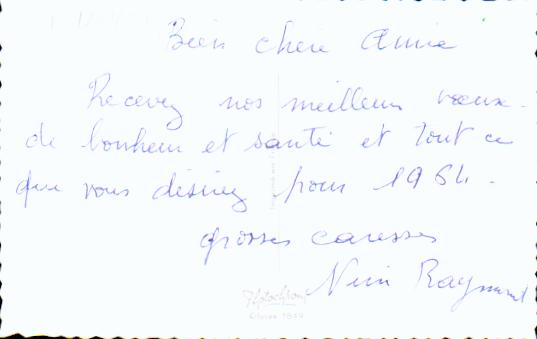 Bien chère Amie
Recevez nos meilleurs voeux
de bonheur et santé et tout ce
que vous désirez pour 1964.
grosses caresses
Nini Raymond